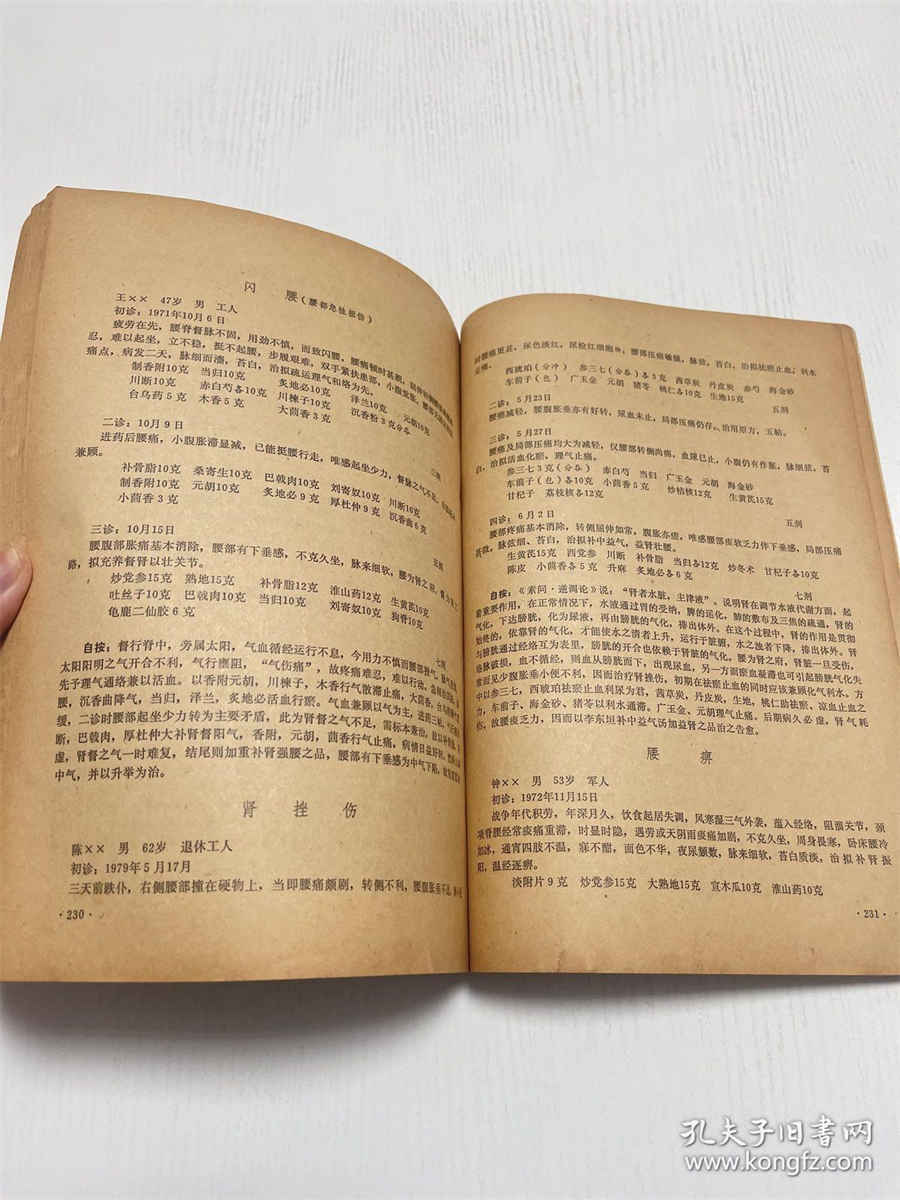 闪 腰（腰部急性扭伤）
王×× 47岁 男 工人
初诊：1971年10月6日
疲劳在先，腰脊督脉不固，用劲不慎，而致闪腰，腰痛顿时甚剧，
忍，难以起坐，立不稳，挺不起腰，步履艰难，双手紧扶患部，小腹觉胀，
痛点，病发二天，脉细而濡，苔白，治拟疏运理气和络为先。
制香附10克 当归10克 炙地必10克 泽兰10克 元胡10克
川断10克 赤白芍各10克 川楝子10克 沉香粉3克分吞
台乌药5克 木香5克 大茴香3克
二诊：10月9日
进药后腰痛，小腹胀滞显减，已能挺腰行走，唯感起坐少力，督脉之气不足，
兼顾。
补骨脂10克 桑寄生10克 巴戟肉10克 刘寄奴10克 川断10克
制香附10克 元胡10克 炙地必9克 厚杜仲9克 沉香曲6克
小茴香3克
三诊：10月15日
腰腹部胀痛基本消除，腰部有下垂感，不克久坐，脉来细软，腰为肾之府，
路，拟充养督肾以壮关节。
炒党参15克 熟地15克 补骨脂12克 淮山药12克 生黄芪15克
吐丝子10克 巴戟肉10克 当归10克 刘寄奴10克 狗脊10克
龟鹿二仙胶6克
七剂
自按：督行脊中，旁属太阳，气血循经运行不息，今用力不慎而腰部督气，
太阳阳明之气开合不利，气行壅阻，“气伤痛”，故疼痛难忍，难以行动，
先予理气通络兼以活血。以香附元胡，川楝子，木香行气散滞止痛，大茴香、
腰，沉香曲降气，当归，泽兰，炙地必活血行瘀。气血兼顾以气为主，进药三剂，
缓，二诊时腰部起坐少力转为主要矛盾，此为肾督之气不足，需标本兼治，
断，巴戟肉，厚杜仲大补肾督阳气，香附，元胡，茴香行气止痛，病情日益好转，
虚，肾督之气一时难复，结尾则加重补肾强腰之品，腰部有下垂感为中气下陷，
中气，并以升举为治。
肾 挫 伤
陈×× 男 62岁 退休工人
初诊：1979年5月17日
三天前跌仆，右侧腰部撞在硬物上，当即腰痛颇剧，转侧不利，腰腹胀垂不适，
·230·
时腰痛更甚，尿色淡红，尿检红细胞卅，腰部压痛敏锐，脉弦，苔白，治拟祛瘀止血，利水
止痛。
西琥珀（分冲） 参三七（分吞）各3克 茜草炭 丹皮炭 赤芍 海金砂
车前子（包） 广玉金 元胡 猪苓 桃仁各10克 生地15克
五剂
二诊：5月23日
腰痛减轻，腰腹胀垂亦有好转，尿血未止，局部压痛仍存，治用原方，五帖。
三诊：5月27日
腰痛及局部压痛均大为减轻，仅腰部转侧尚痛，血尿已止，小腹仍有作胀，脉细弦，苔
白，治拟活血化瘀，理气止痛。
参三七3克（分吞） 赤白芍 当归 广玉金 元胡 海金砂
车前子（包）各10克 小茴香5克 炒桔核12克 生黄芪15克
甘杞子 荔枝核各12克
五剂
四诊：6月2日
腰部疼痛基本消除，转侧屈伸如常，腹胀亦瘥，唯感腰部痠软乏力伴下垂感，局部压痛
甚微，脉弦细，苔白，治拟补中益气，益肾壮腰。
生黄芪15克 西党参 川断 补骨脂 当归各12克 炒冬术 甘杞子各10克
陈皮 小茴香各5克 升麻 炙地必各6克
七剂
自按：《素问·逆调论》说：“肾者水脏，主津液”。说明肾在调节水液代谢方面，起
着重要作用，在正常情况下，水液通过胃的受纳，脾的运化，肺的敷布及三焦的疏通，肾的
气化，下达膀胱，化为尿液，再由膀胱的气化，排出体外。在这个过程中，肾的作用是贯彻
始终的，依靠肾的气化，才能使水之清者上升，运行于脏腑，水之浊者下降，排出体外。肾
与膀胱通过经络互为表里，膀胱的开合也依赖于肾脏的气化，腰为肾之府，肾脏一旦受伤，
络脉破损，血不循经，则血从膀胱而下，出现尿血，另一方面瘀血凝滞也可引起膀胱气化失
常而见少腹胀垂小便不利，因而治疗肾挫伤，初期在祛瘀止血的同时应该兼顾化气利水。方
以参三七，西琥珀祛瘀止血利尿为君，茜草炭、丹皮炭、生地、桃仁助祛瘀，凉血止血之
力，车前子、海金砂、猪苓等以利水通滞。广玉金、元胡理气止痛。后期病久必虚，肾气耗
伤，故腰痠乏力，因而以李东垣补中益气汤加益肾之品治之告愈。
腰 痹
钟×× 男 53岁 军人
初诊：1972年11月15日
战争年代积劳，年深月久，饮食起居失调，风寒湿三气外袭，蕴入经络，阻滞关节，颈
项脊腰经常痠痛重滞，时显时隐，遇劳或天阴雨痠痛加剧，不克久坐，周身畏寒，卧床腰冷
如冰，通宵四肢不温，寐不酣，面色不华，夜尿颇数，脉来细软，苔白质淡，治拟补肾振
阳，温经逐痹。
淡附片9克 炒党参15克 大熟地15克 宣木瓜10克 淮山药10克
·231·
孔夫子旧书网
www.kongfz.com